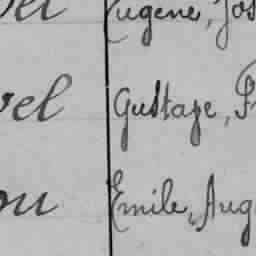 Eugène, Jos
vel Gustave, F
ou Emile, Aug